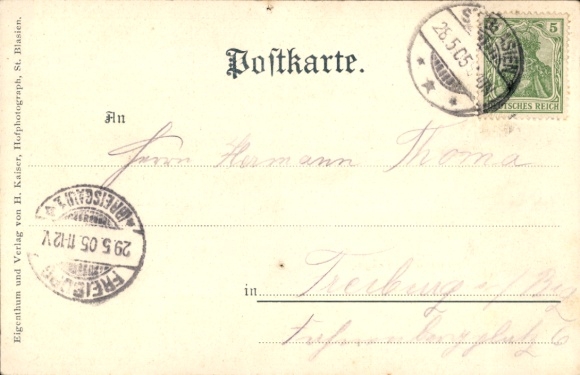 Postkarte.
ST. BLASIEN
28.5.05
5
DEUTSCHES REICH
An
Herrn Hermann Thoma
FREIBURG
29.5.05.11-12V
*(BREISGAU)1.*
in Freiburg i/ Brg
6
Eigenthum und Verlag von H. Kaiser, Hofphotograph, St. Blasien.